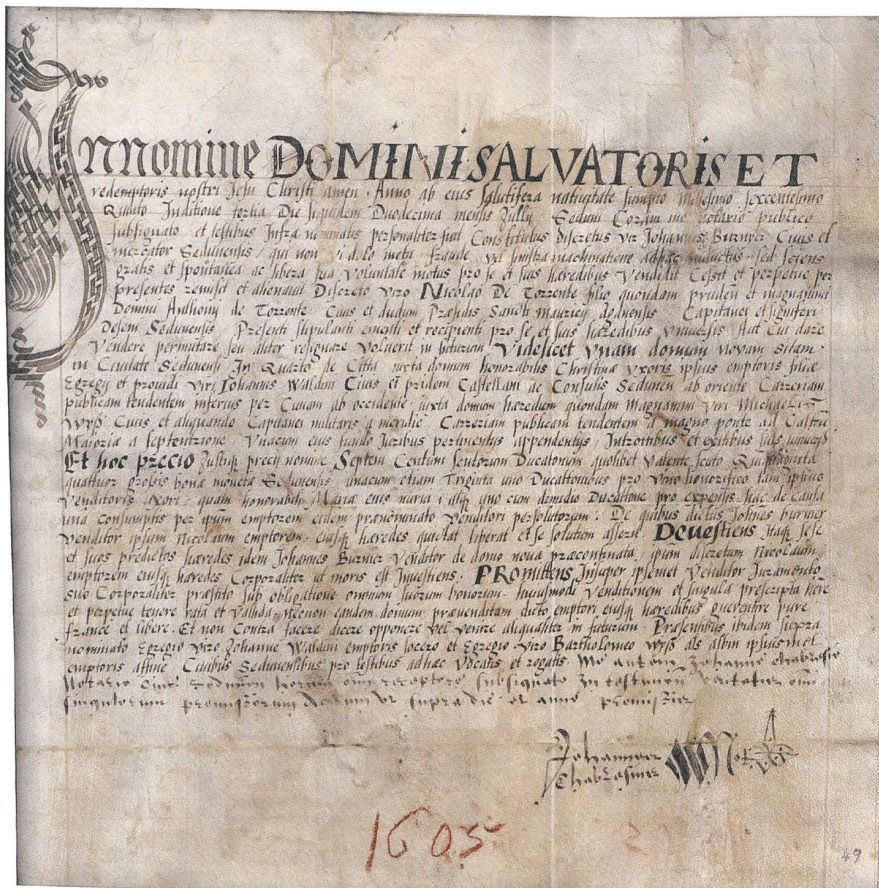 In nomine DOMINI SALVATORIS ET
redemptoris nostri Jesu Christi amen. Anno ab eius salutifera nativitate sumpto Millesimo sexcentesimo
Quinto Inditione tertia Die siquidem Duodecima mensis Jullij Seduni Coram me notario publico
subsignato et testibus infra nominatis personaliter Constitutus discretus vir Johannes Burnier Civis et
mercator Sedunensis, qui non vi dolo metu fraude vel sinistra machinatione ad hæc inductus sed sciens
gratis et spontanea ac libera sua voluntate motus pro se et suis hæredibus Vendidit Cessit et perpetue per
presentes remisit et alienavit Discreto viro Nicolao De Torrente filio quondam prudentis et magnanimi
Domini Anthonij de Torrente Civis et dudum Præsidis Sancti Mauricij Capitanei et signiferi
Deseni Sedunensis Presenti stipulanti ementi et recipienti pro se et suis hæredibus universis Aut Cui dare
Vendere permutare seu aliter resignare voluerit in futurum. Videlicet unam domum novam sitam
in Civitate Sedunensi In Quarto de Citta juxta domum honorabilis Christinæ uxoris ipsius emptoris filiæ
Egregij et providi viri Johannis Waldin Civis et pridem Castellani ac Consulis Sedunen ab oriente Carreriam
publicam tendentem inferius per Civam ab occidente juxta domum hæredum quondam Magnanimi viri Michaelis
Wyss Civis et aliquando Capitanei militaris a meridie Carreriam publicam tendentem a magno ponte ad Castrum
Maioria a septentrione. Unacum eius fundo Juribus pertinentijs appendentijs, Introitibus et exitibus suis universis
Et hoc precio Justique precij nomine Septem Centum scutorum Ducatonum quolibet valente scuto Quinquaginta
quatuor grossis bonæ monetæ Sedunensis unacum etiam Triginta uno Ducatonibus pro vino honorifico tam ipsius
Venditoris Uxori quam honorabili Maria eius nurui atque uno cum demidio Ducatone pro expensis hac de Causa
una consumptis per ipsum emptorem eidem prænominato venditori persolutorum. De quibus dictus Johannes burnier
Venditor ipsum Nicolaum emptorem eiusque hæredes quictat liberat et se solutum asserit. Devestiens itaque sese
et suos predictos hæredes idem Johannes Burnier Venditor de domo nova præconfinata, ipsum discretum Nicolaum
emptorem eiusque hæredes Corporaliter ut moris est Investiens. PROmittens Insuper ipsemet Venditor Juramento
suo Corporaliter præstito sub obligatione omnium suorum bonorum. huiusmodi Venditionem et singula prescripta
et perpetue tenere rata et valida. Necnon eandem domum prævenditam dicto emptori eiusque hæredibus guerentire pure
france et libere. Et non Contra facere dicere opponere vel venire aliqualiter in futurum. Præsentibus ibidem supra
nominato Egregio viro Johanne Waldin emptoris socero et Egregio viro Bartholomeo Wyss als albin ipsiusmet
emptoris affine Civibus Sedunensibus pro testibus ad hæc vocatis et rogatis. Me autem Johanne chablasio
Notario cive Sedunen horum receptore subsignato in testimonium veritatis omnium
singulorum premissorum datum ut supra die et anno premissis
Johannes
chablesius Not
1605
49